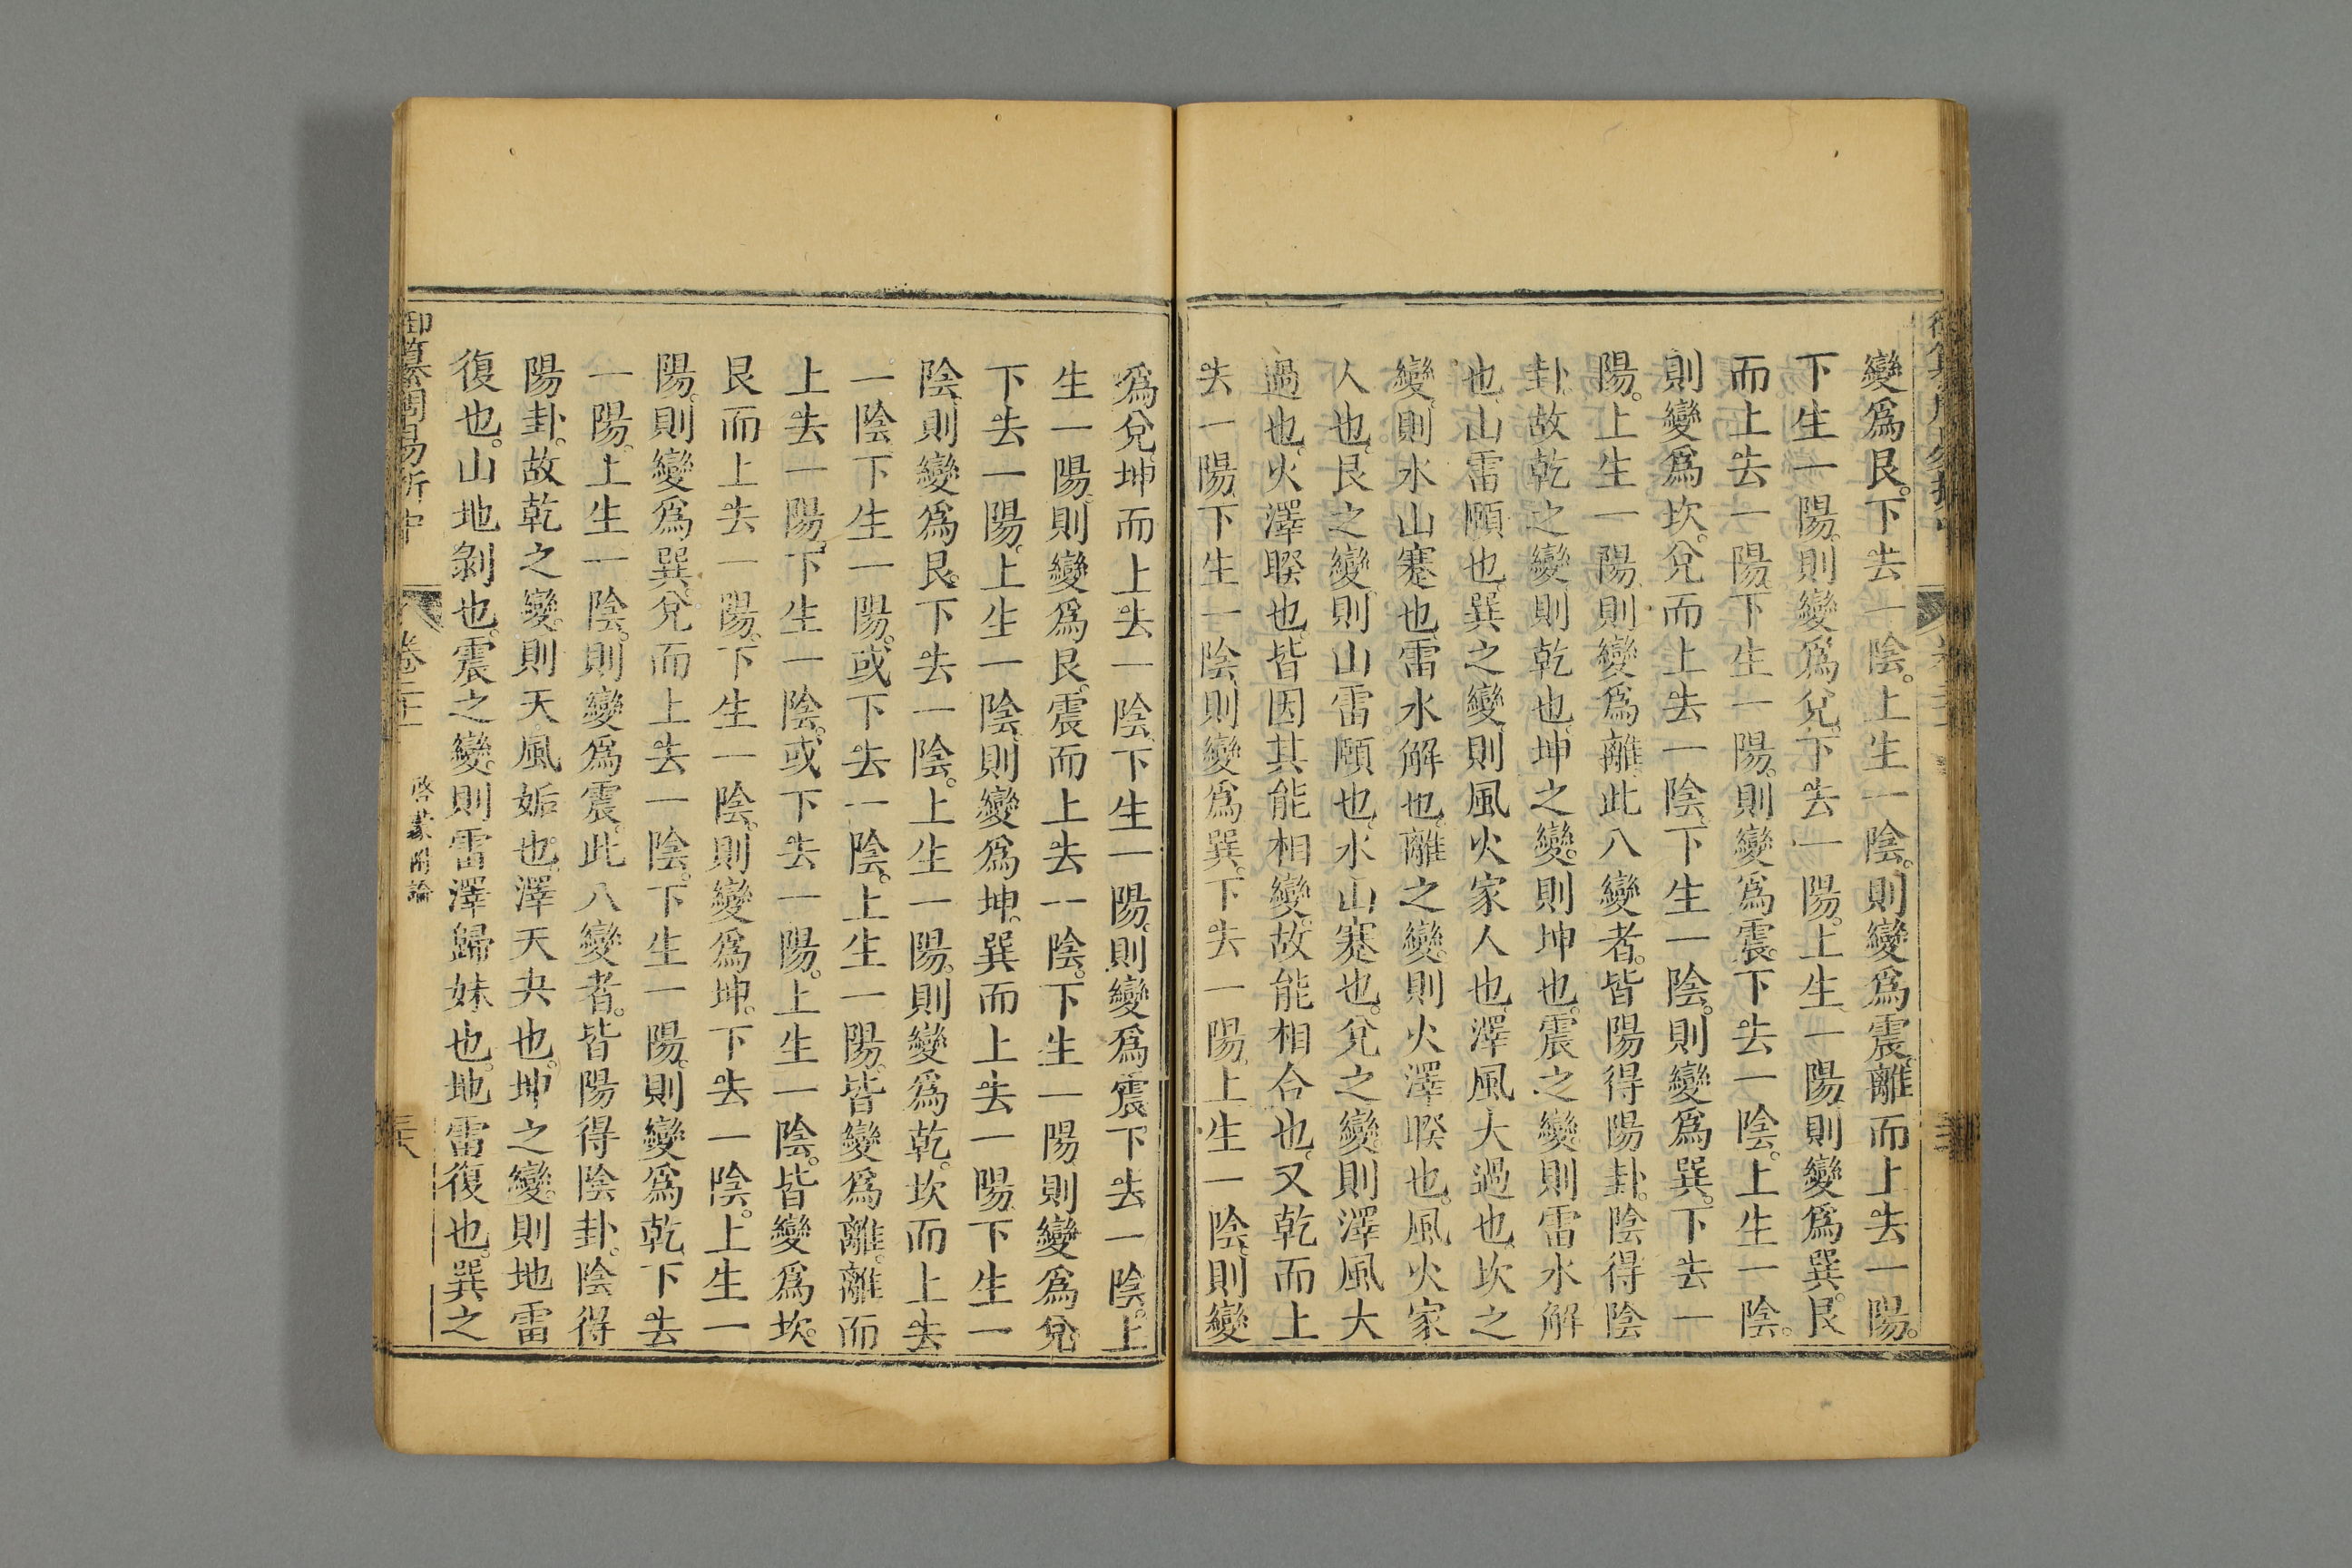 變爲艮。下去一陰。上生一陰。則變爲震。離而上去一陽。
下生一陽。則變爲兌。下去一陽。上生一陽。則變爲巽。艮
而上去一陽。下生一陽。則變爲震。下去一陰。上生一陰。
則變爲坎。兌而上去一陰。下生一陰。則變爲巽。下去一
陽。上生一陽。則變爲離。此八變者。皆陽得陽卦。陰得陰
卦。故乾之變。則乾也。坤之變。則坤也。震之變。則雷水解
也。山雷頤也。巽之變。則風火家人也。澤風大過也。坎之
變。則水山蹇也。雷水解也。離之變。則火澤睽也。風火家
人也。艮之變。則山雷頤也。水山蹇也。兌之變。則澤風大
過也。火澤睽也。皆因其能相變。故能相合也。又乾而上
去一陽。下生一陰。則變爲巽。下去一陽。上生一陰。則變
爲兌。坤而上去一陰。下生一陽。則變爲震。下去一陰。上
生一陽。則變爲艮。震而上去一陰。下生一陽。則變爲兌。
下去一陽。上生一陰。則變爲坤。巽而上去一陽。下生一
陰。則變爲艮。下去一陰。上生一陽。則變爲乾。坎而上去
一陰。下生一陽。或下去一陰。上生一陽。皆變爲離。離而
上去一陽。下生一陰。或下去一陽。上生一陰。皆變爲坎。
艮而上去一陽。下生一陰。則變爲坤。下去一陰。上生一
陽。則變爲巽。兌而上去一陰。下生一陽。則變爲乾。下去
一陽。上生一陰。則變爲震。此八變者。皆陽得陰卦。陰得
陽卦。故乾之變。則天風姤也。澤天夬也。坤之變。則地雷
復也。山地剝也。震之變。則雷澤歸妹也。地雷復也。巽之
御纂周易折中
卷二十一
啓蒙附論